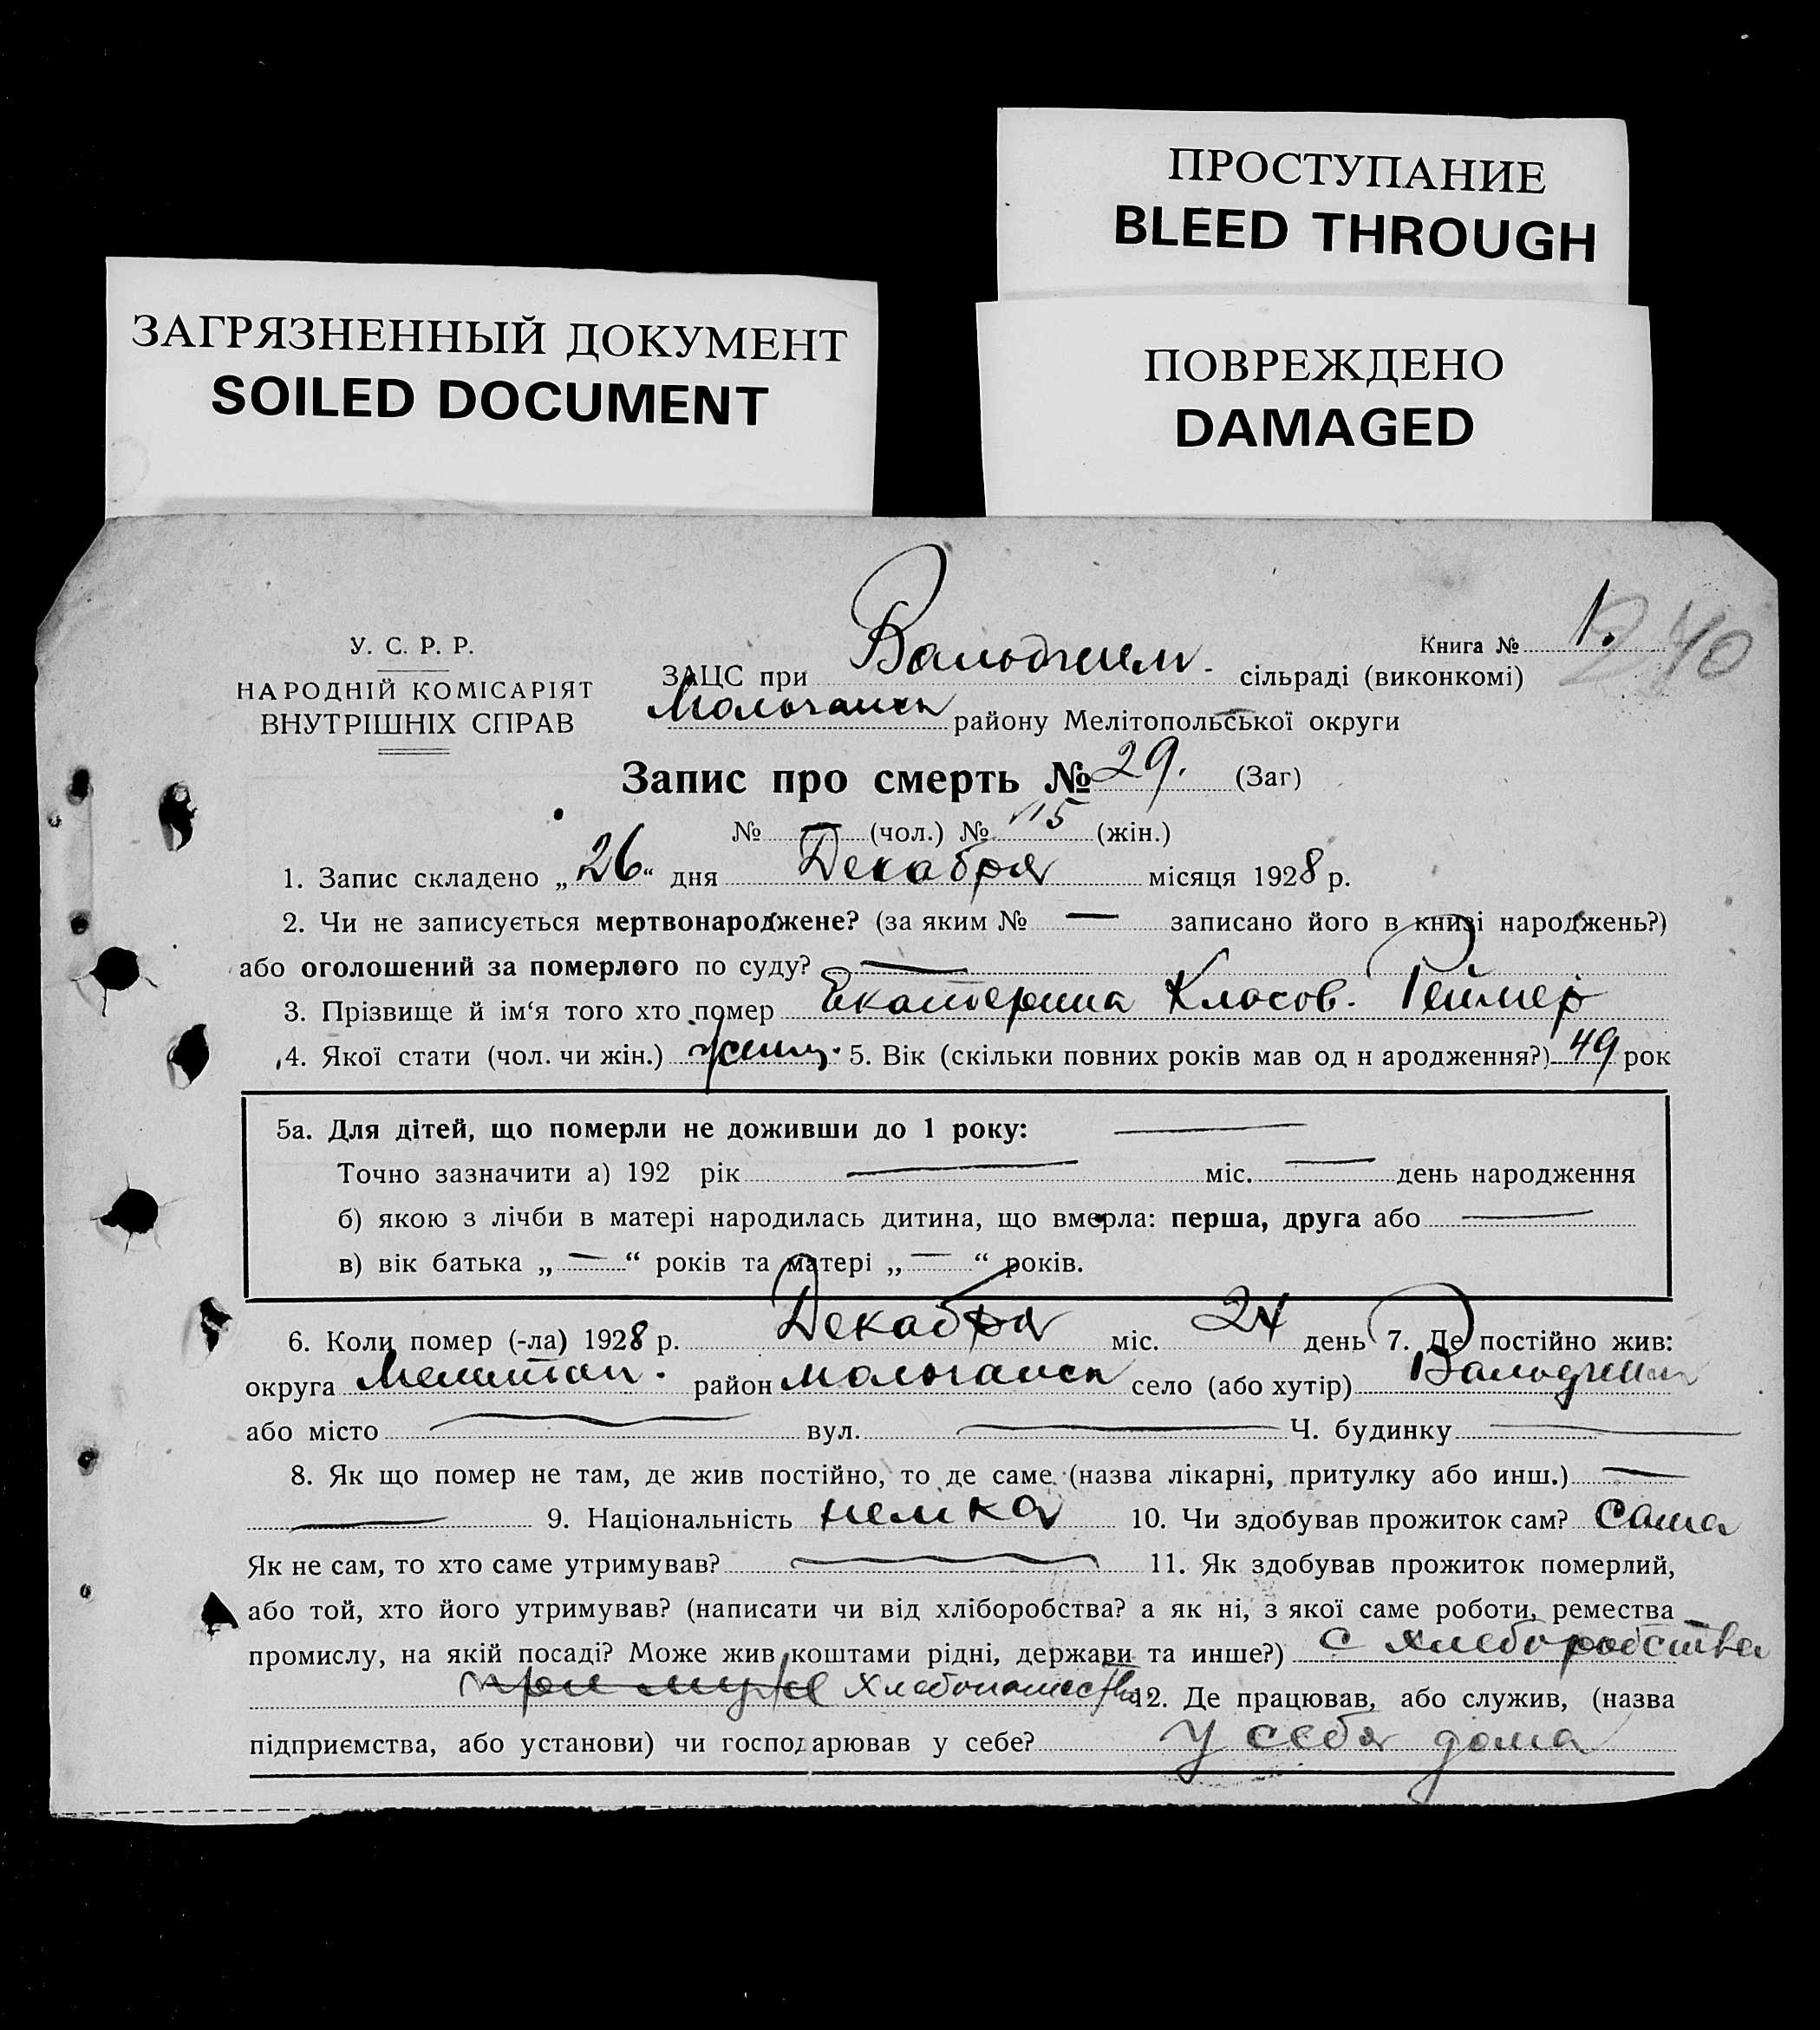 ПРОСТУПАНИЕ
BLEED THROUGH
ЗАГРЯЗНЕННЫЙ ДОКУМЕНТ
SOILED DOCUMENT
ПОВРЕЖДЕНО
DAMAGED
У. С. Р. Р.
НАРОДНІЙ КОМІСАРІЯТ
ВНУТРІШНІХ СПРАВ
Книга № 1. 240
ЗАЦС при Вальдгейм. сільраді (виконкомі)
Молочанск району Мелітопольської округи
Запис про смерть № 29. (Заг)
№ — (чол.) № 15 (жін.)
1. Запис складено „26“ дня Декабря місяця 1928 р.
2. Чи не записується мертвонароджене? (за яким № — записано його в книзі народжень?)
або оголошений за померлого по суду? —
3. Прізвище й ім'я того хто помер Екатерина Класов. Реймер
4. Якої стати (чол. чи жін.) женщ. 5. Вік (скільки повних років мав од н ародження?) 49 рок
5а. Для дітей, що померли не доживши до 1 року: —
Точно зазначити а) 192 рік — міс. — день народження
б) якою з лічби в матері народилась дитина, що вмерла: перша, друга або —
в) вік батька „—“ років та матері „—“ років.
6. Коли помер (-ла) 1928 р. Декабря міс. 24 день 7. Де постійно жив:
округа Мелитоп. район Молочанск село (або хутір) Вальдгейм
або місто — вул. — Ч. будинку —
8. Як що помер не там, де жив постійно, то де саме (назва лікарні, притулку або инш.) —
— 9. Національність немка 10. Чи здобував прожиток сам? Сама
Як не сам, то хто саме утримував? — 11. Як здобував прожиток померлий,
або той, хто його утримував? (написати чи від хліборобства? а як ні, з якої саме роботи, ремества
промислу, на якій посаді? Може жив коштами рідні, держави та инше?) с хлеборобства
при муже хлебопашества 12. Де працював, або служив, (назва
підприємства, або установи) чи господарював у себе? У себя дома